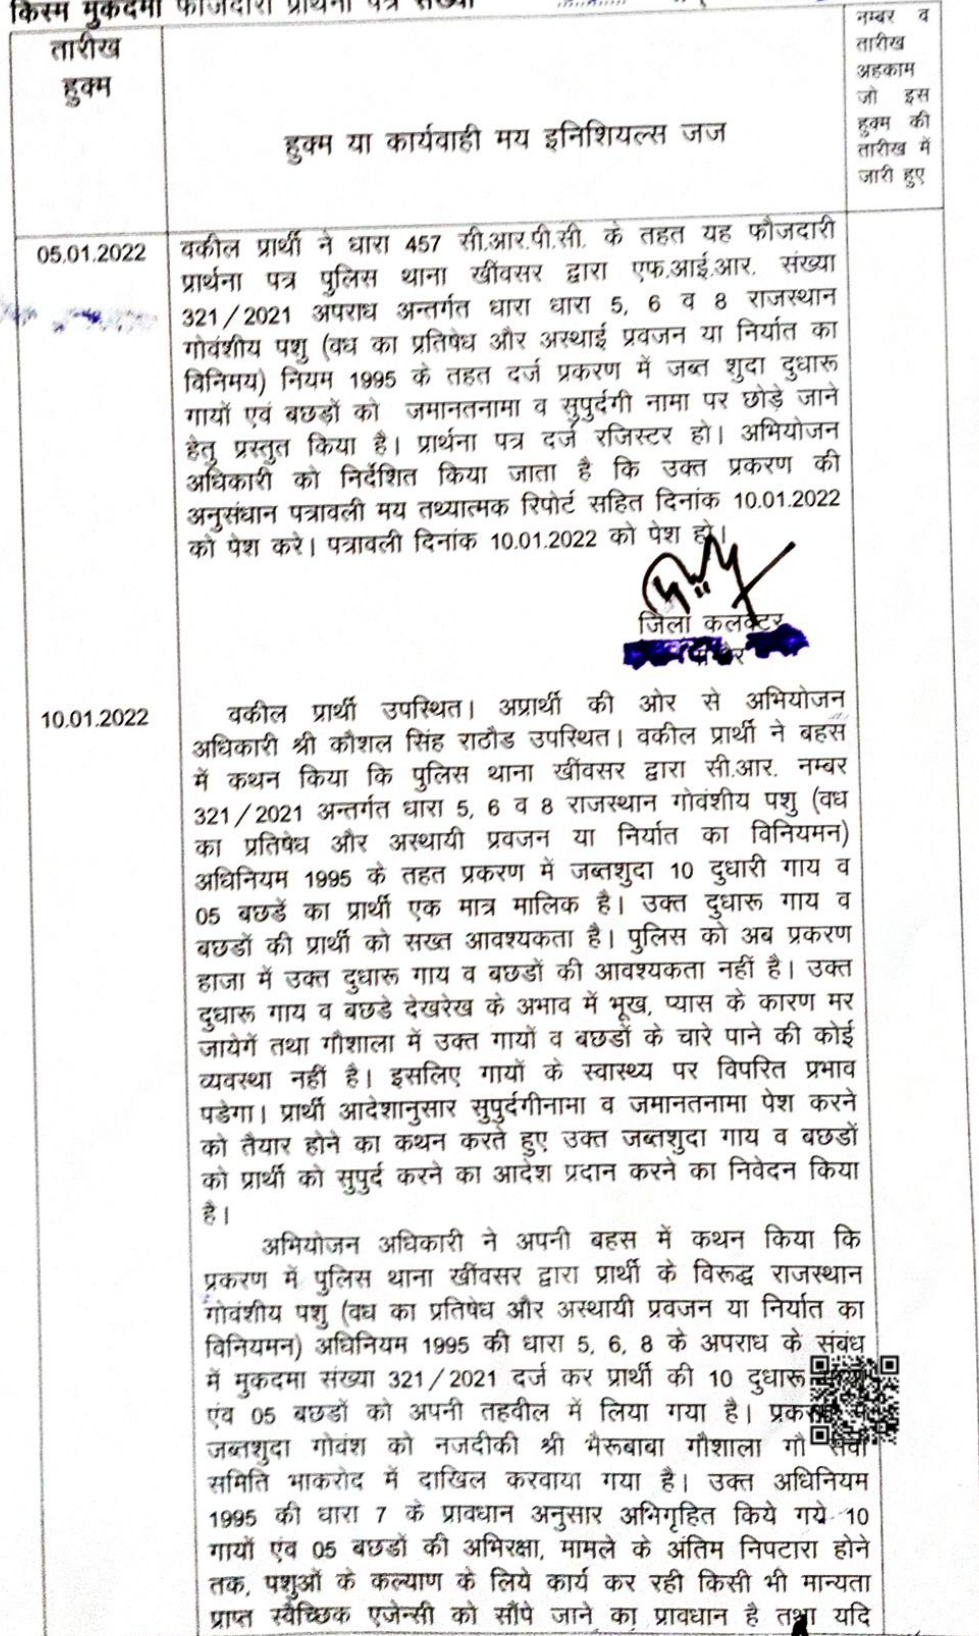 किस्म मुकदमा फौजदारी प्रार्थना पत्र संख्या
तारीख
हुक्म
हुक्म या कार्यवाही मय इनिशियल्स जज
नम्बर व
तारीख
अहकाम
जो इस
हुक्म की
तारीख में
जारी हुए
05.01.2022
वकील प्रार्थी ने धारा 457 सी.आर.पी.सी. के तहत यह फौजदारी
प्रार्थना पत्र पुलिस थाना खींवसर द्वारा एफ.आई.आर. संख्या
321/2021 अपराध अन्तर्गत धारा धारा 5, 6 व 8 राजस्थान
गोवंशीय पशु (वध का प्रतिषेध और अस्थाई प्रवजन या निर्यात का
विनिमय) नियम 1995 के तहत दर्ज प्रकरण में जब्त शुदा दुधारू
गायों एवं बछड़ों को जमानतनामा व सुपुर्दगी नामा पर छोड़े जाने
हेतु प्रस्तुत किया है। प्रार्थना पत्र दर्ज रजिस्टर हो। अभियोजन
अधिकारी को निर्देशित किया जाता है कि उक्त प्रकरण की
अनुसंधान पत्रावली मय तथ्यात्मक रिपोर्ट सहित दिनांक 10.01.2022
को पेश करे। पत्रावली दिनांक 10.01.2022 को पेश हो।
जिला कलक्टर
10.01.2022
वकील प्रार्थी उपस्थित। अप्रार्थी की ओर से अभियोजन
अधिकारी श्री कौशल सिंह राठौड उपस्थित। वकील प्रार्थी ने बहस
में कथन किया कि पुलिस थाना खींवसर द्वारा सी.आर. नम्बर
321/2021 अन्तर्गत धारा 5, 6 व 8 राजस्थान गोवंशीय पशु (वध
का प्रतिषेध और अस्थायी प्रवजन या निर्यात का विनियमन)
अधिनियम 1995 के तहत प्रकरण में जब्तशुदा 10 दुधारी गाय व
05 बछडें का प्रार्थी एक मात्र मालिक है। उक्त दुधारू गाय व
बछडों की प्रार्थी को सख्त आवश्यकता है। पुलिस को अब प्रकरण
हाजा में उक्त दुधारू गाय व बछडों की आवश्यकता नहीं है। उक्त
दुधारू गाय व बछडे देखरेख के अभाव में भूख, प्यास के कारण मर
जायेगें तथा गौशाला में उक्त गायों व बछडों के चारे पाने की कोई
व्यवस्था नहीं है। इसलिए गायों के स्वास्थ्य पर विपरित प्रभाव
पडेगा। प्रार्थी आदेशानुसार सुपुर्दगीनामा व जमानतनामा पेश करने
को तैयार होने का कथन करते हुए उक्त जब्तशुदा गाय व बछडों
को प्रार्थी को सुपुर्द करने का आदेश प्रदान करने का निवेदन किया
है।
अभियोजन अधिकारी ने अपनी बहस में कथन किया कि
प्रकरण में पुलिस थाना खींवसर द्वारा प्रार्थी के विरूद्ध राजस्थान
गोवंशीय पशु (वध का प्रतिषेध और अस्थायी प्रवजन या निर्यात का
विनियमन) अधिनियम 1995 की धारा 5, 6, 8 के अपराध के संबंध
में मुकदमा संख्या 321/2021 दर्ज कर प्रार्थी की 10 दुधारू
एंव 05 बछडों को अपनी तहवील में लिया गया है।
जब्तशुदा गोवंश को नजदीकी श्री भैरूबाबा गौशाला गौ सेवा
समिति भाकरोद में दाखिल करवाया गया है। उक्त अधिनियम
1995 की धारा 7 के प्रावधान अनुसार अभिगृहित किये गये 10
गायों एंव 05 बछडों की अभिरक्षा, मामले के अंतिम निपटारा होने
तक, पशुओं के कल्याण के लिये कार्य कर रही किसी भी मान्यता
प्राप्त स्वैच्छिक एजेन्सी को सौंपे जाने का प्रावधान है तथा यदि